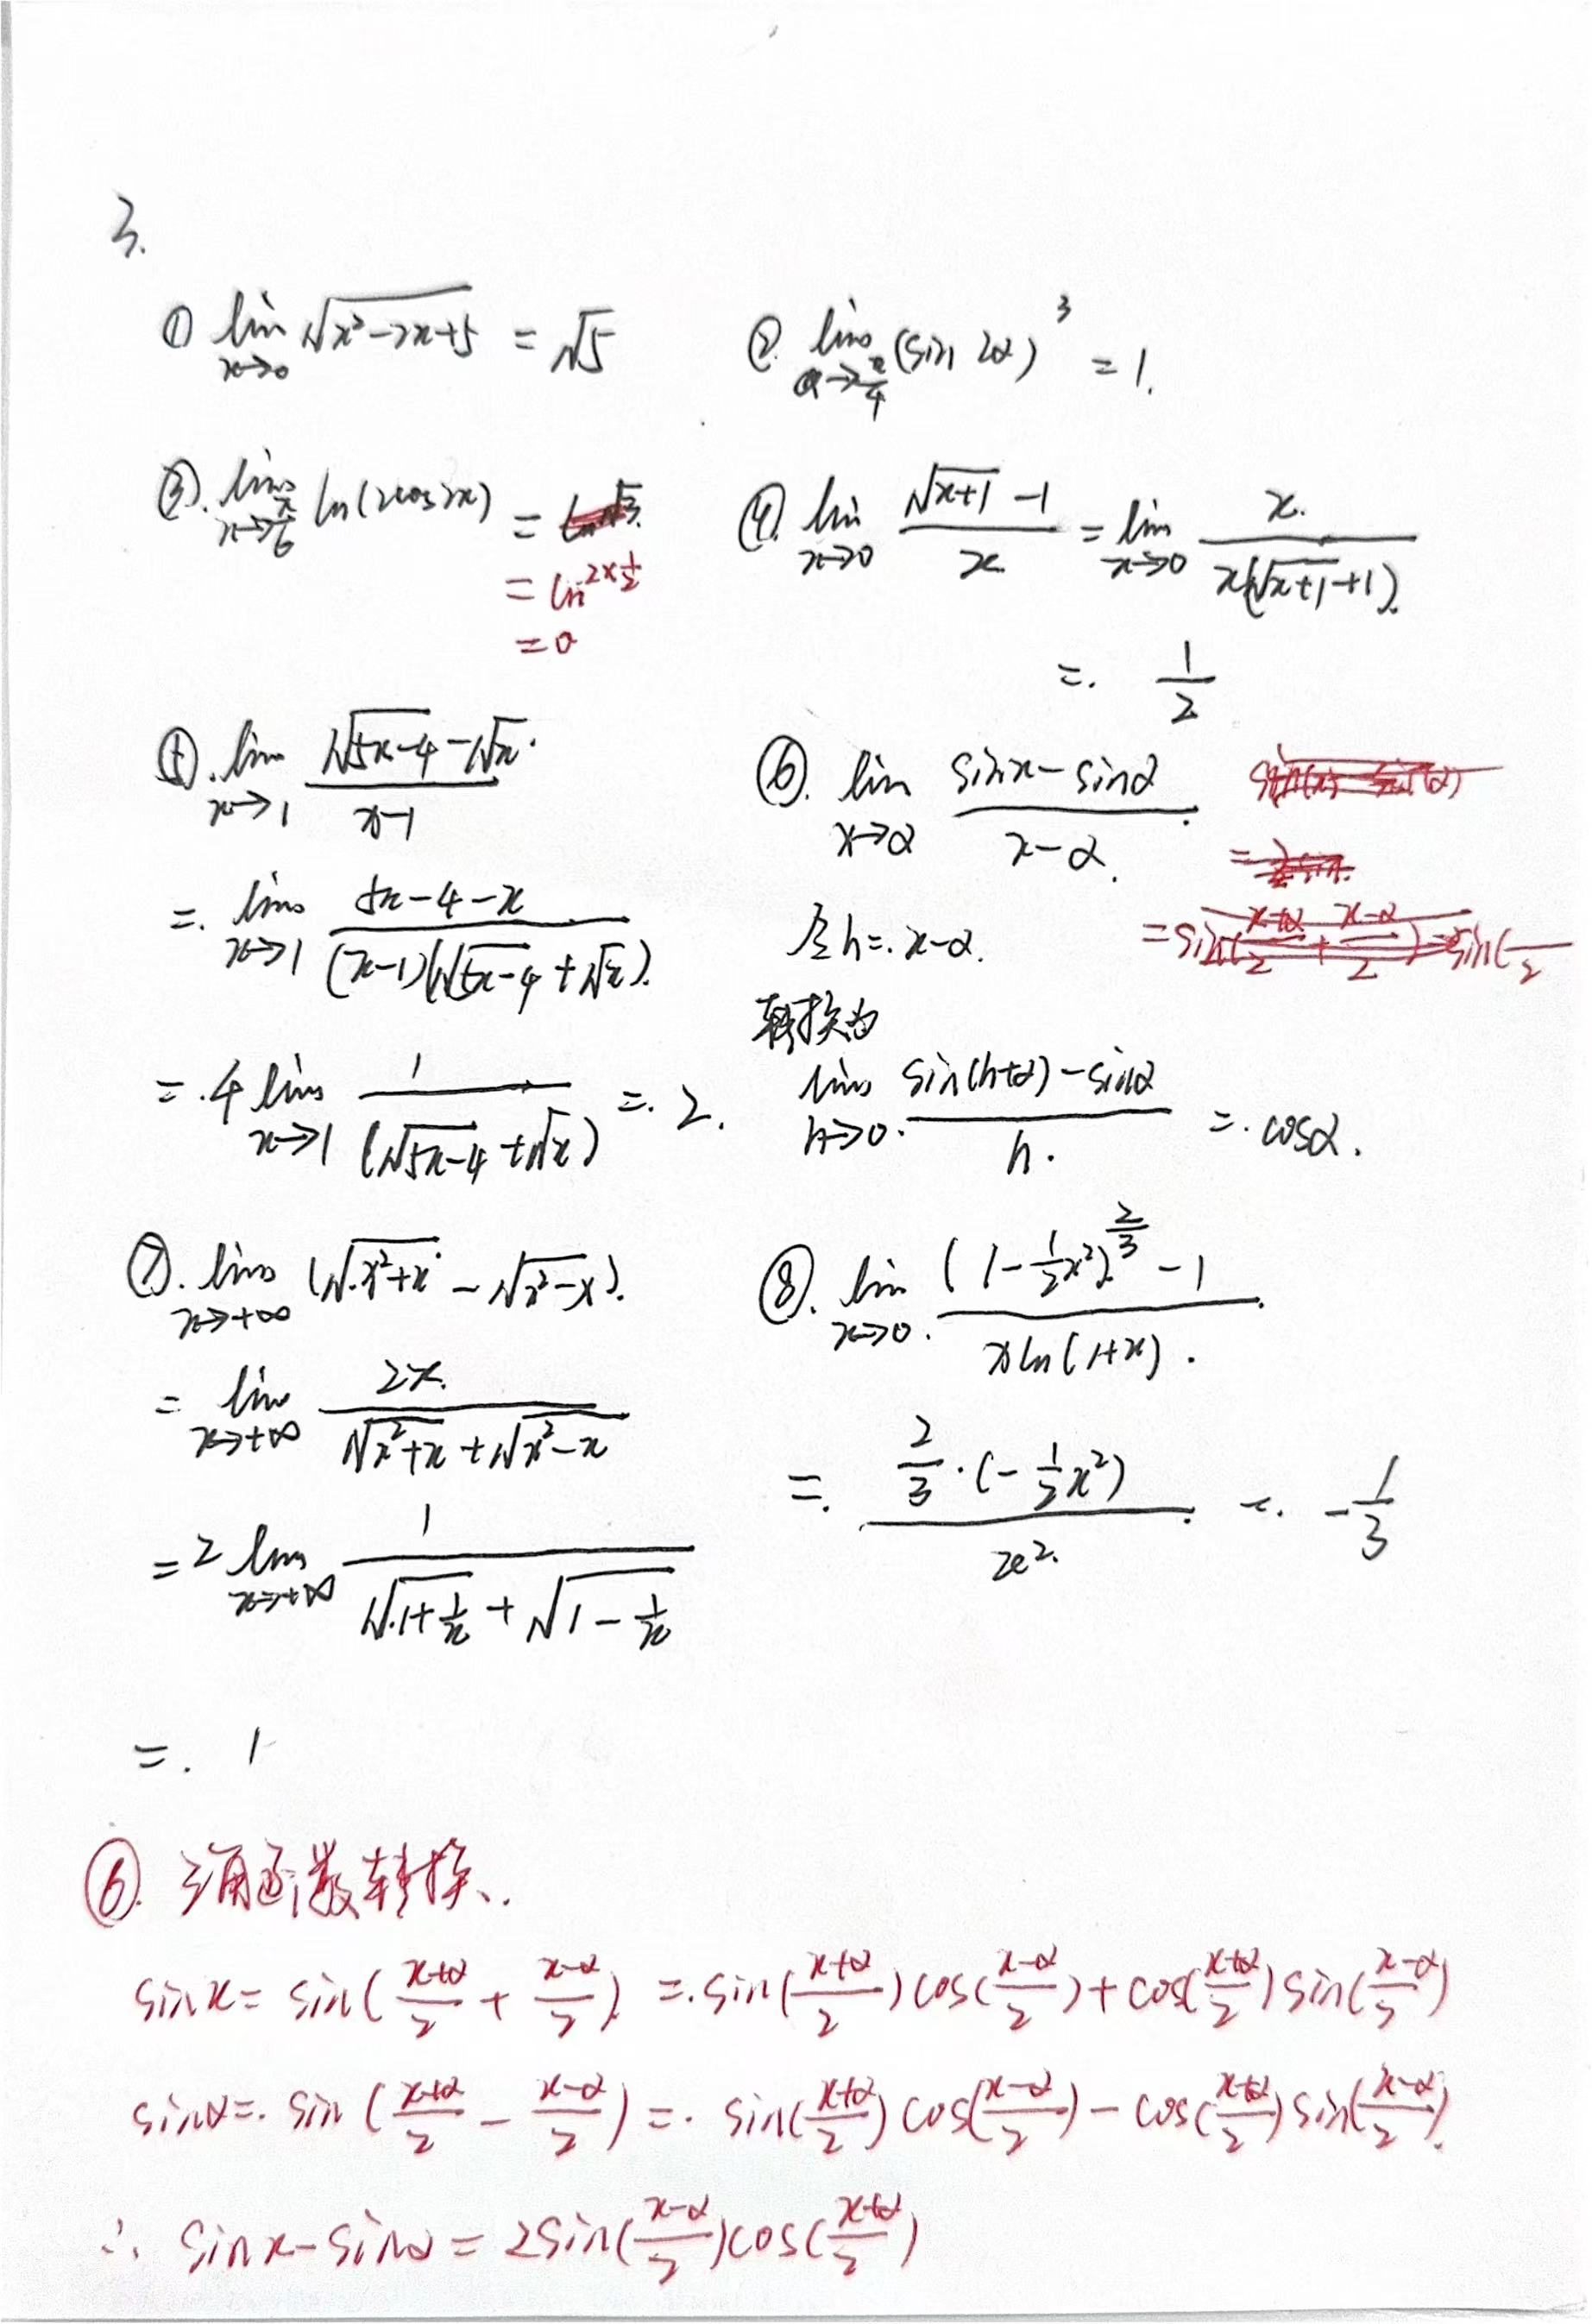 3.
① lim x→0 √(x²-2x+5) = √5
② lim α→π/4 (sin 2α)³ = 1.
③. lim x→π/6 ln(2cos2x) = ln√3.
= ln 2×1/2
= 0
④. lim x→0 (√(x+1) - 1)/x = lim x→0 x/(x(√(x+1)+1)).
=. 1/2
⑤. lim x→1 (√(5x-4) - √x)/(x-1)
=. lim x→1 (5x-4-x)/((x-1)(√(5x-4)+√x)).
= .4 lim x→1 1/(√(5x-4)+√x) =. 2.
⑥. lim x→α (sinx - sinα)/(x-α).
令h=.x-α.
转换为
lim h→0. (sin(h+α) - sinα)/h. =. cosα.
sin(x) - sin(α)
= 2sin.
= sin((x+α)/2 + (x-α)/2) - sin(
⑦. lim x→+∞ (√(x²+x) - √(x²-x)).
= lim x→+∞ 2x/(√(x²+x) + √(x²-x))
= 2 lim x→+∞ 1/(√(1+1/x) + √(1-1/x))
=. 1
⑧. lim x→0. ((1-1/2x²)^(2/3) - 1)/(xln(1+x)).
=. (2/3·(-1/2x²))/x². =. -1/3
⑥. 三角函数转换..
sinx = sin((x+α)/2 + (x-α)/2). =. sin((x+α)/2)cos((x-α)/2) + cos((x+α)/2)sin((x-α)/2)
sinα=. sin((x+α)/2 - (x-α)/2) =. sin((x+α)/2)cos((x-α)/2) - cos((x+α)/2)sin((x-α)/2).
∴ sinx-sinα = 2sin((x-α)/2)cos((x+α)/2)